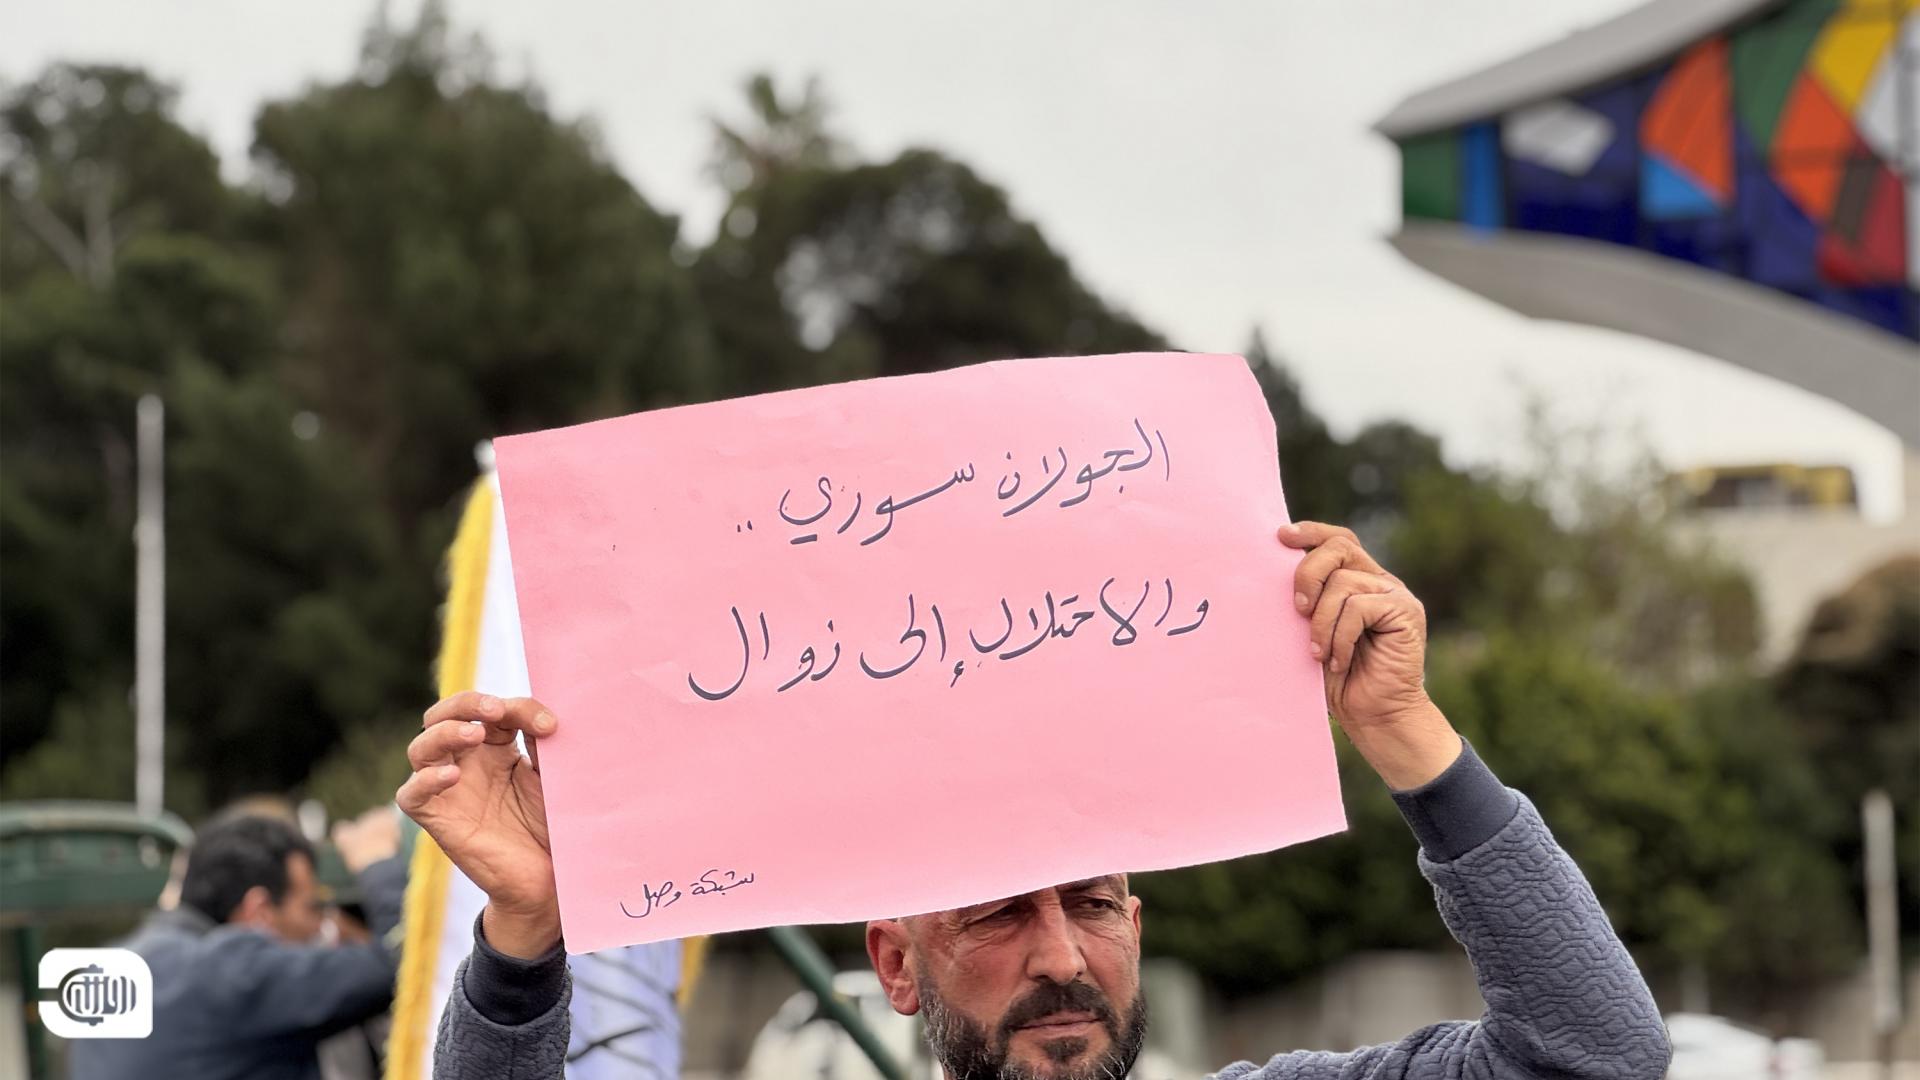 الجولان سوري ..
والاحتلال إلى زوال
شبكة وصل